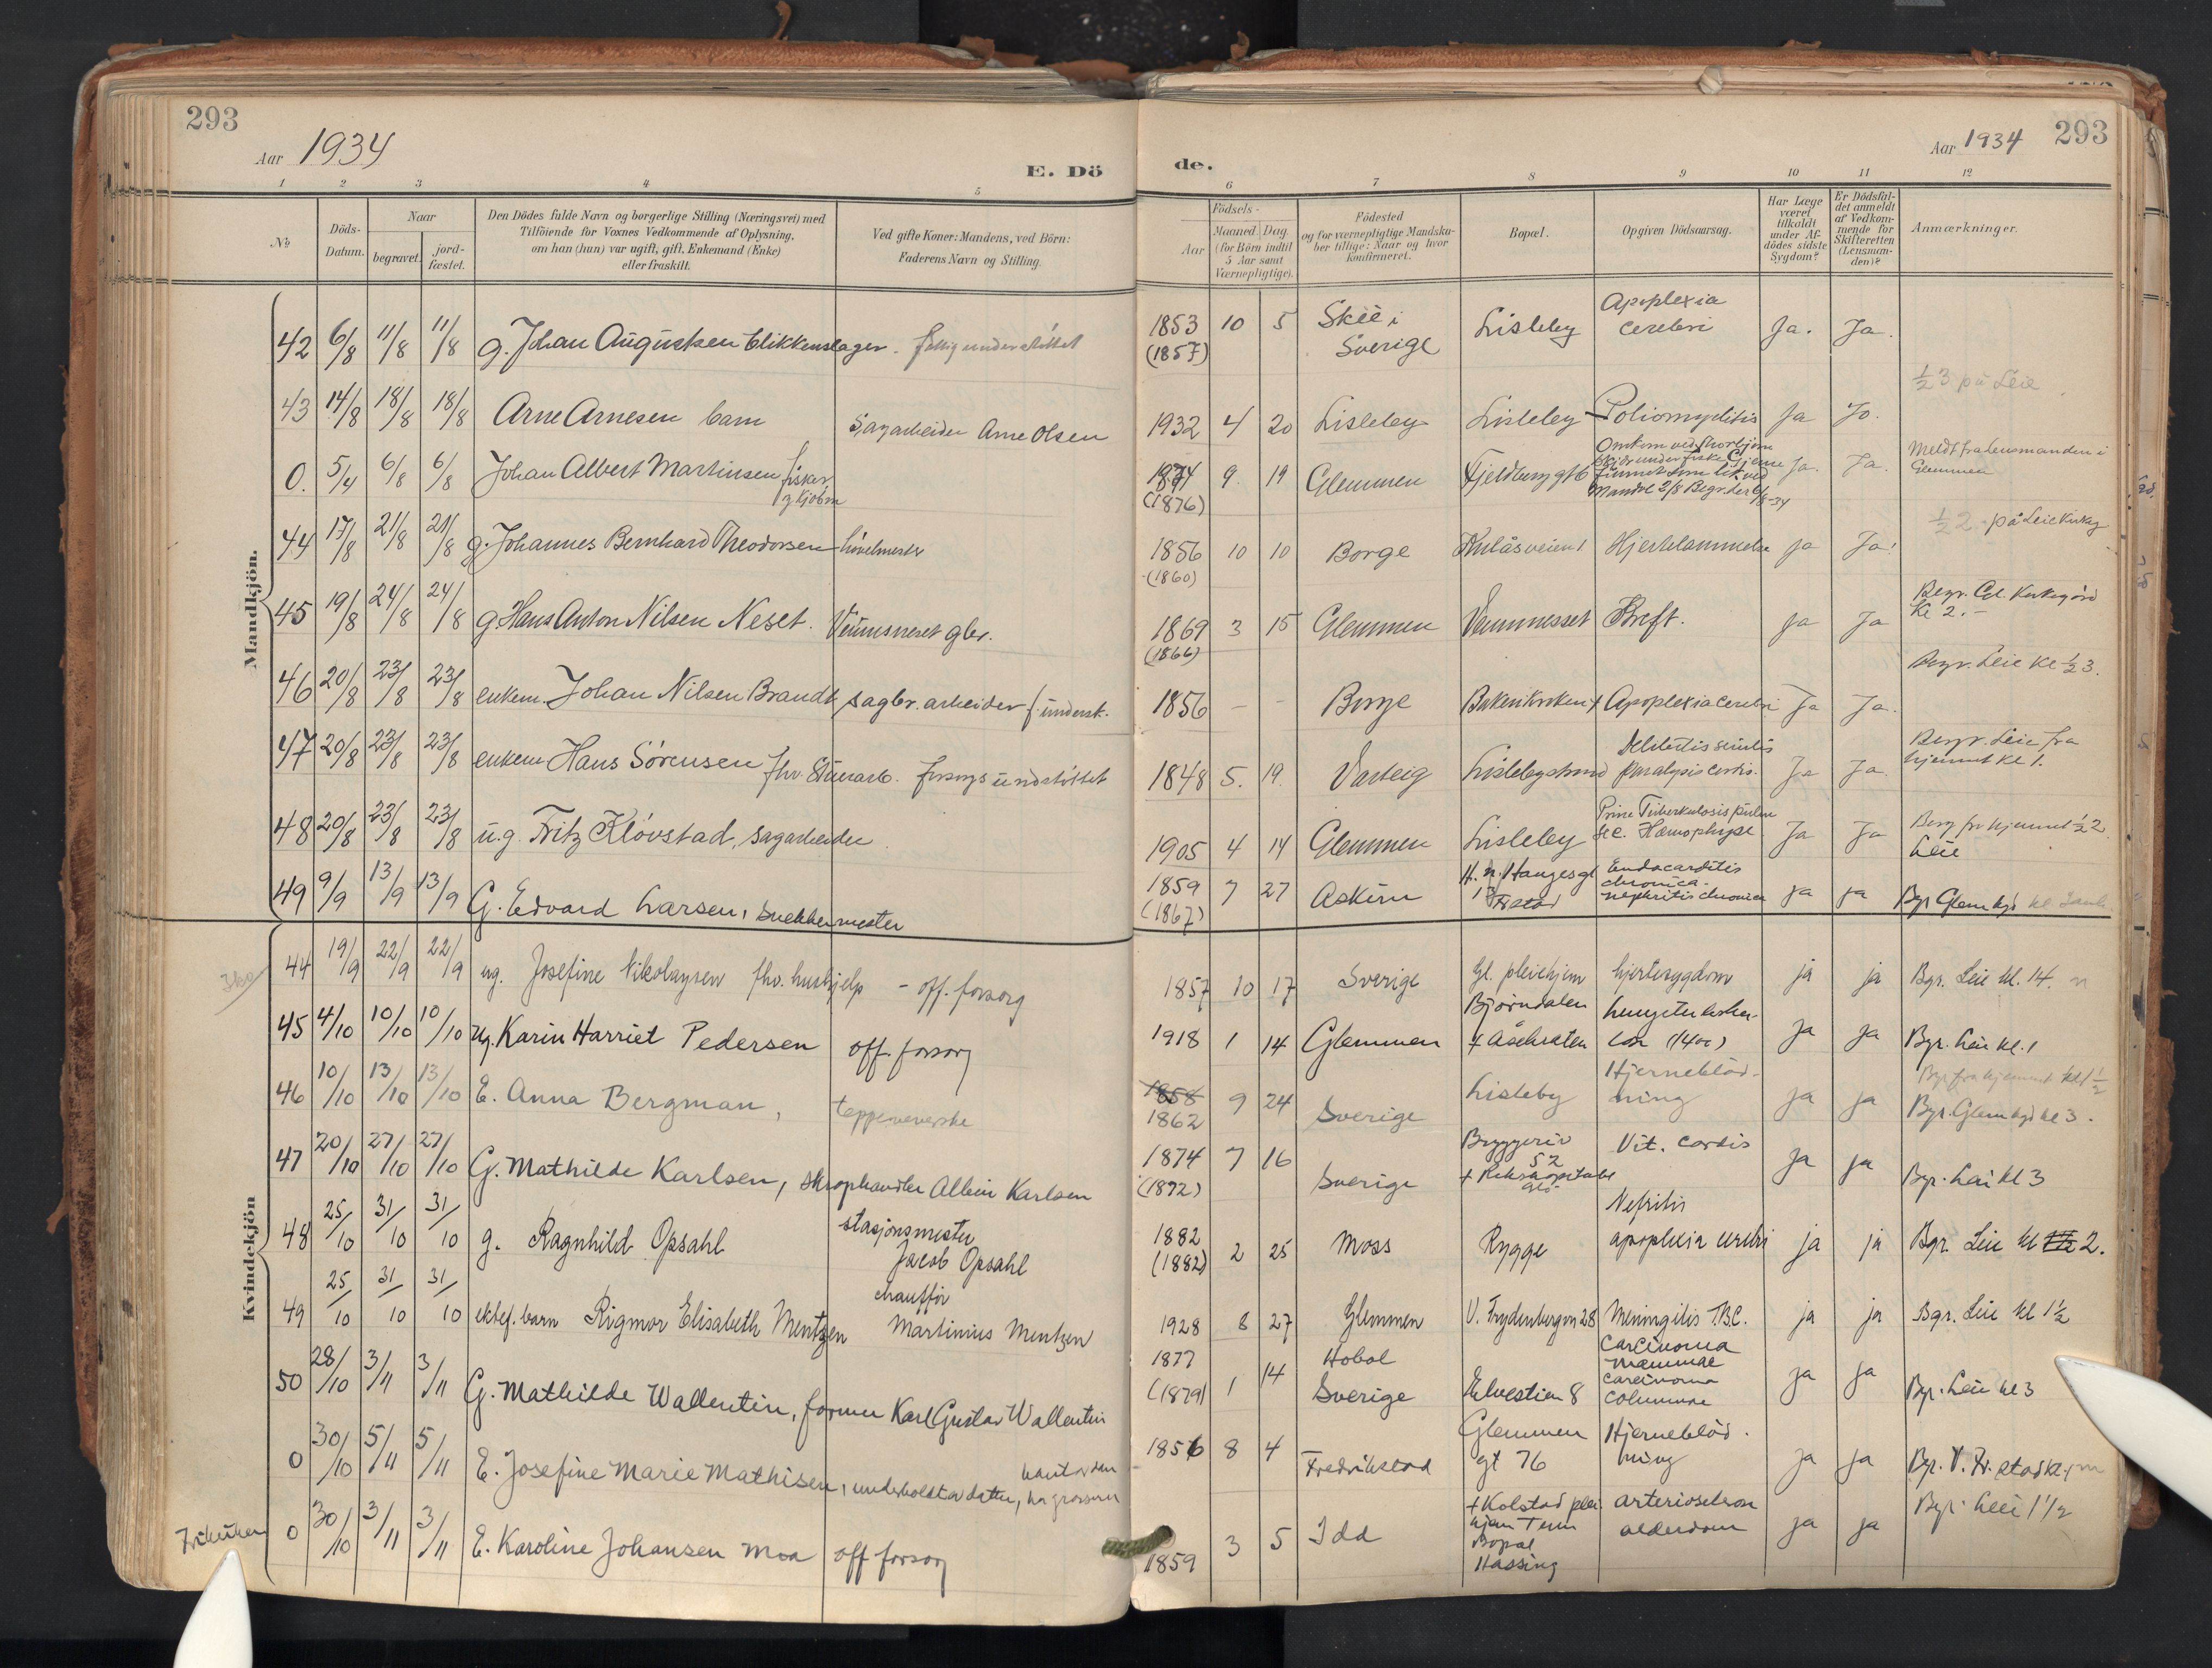 293
Aar 1934
E. Dö
1 2 3 4 5
№
Döds-Datum.
Naar
begravet.
jord-fæstet.
Den Dödes fulde Navn og borgerlige Stilling (Næringsvei) med
Tilföiende for Voxnes Vedkommende af Oplysning,
om han (hun) var ugift, gift, Enkemand (Enke)
eller fraskilt.
Ved gifte Koner: Mandens, ved Börn:
Faderens Navn og Stilling.
Mandkjön.
42 6/8 11/8 11/8 g. Johan Augustsen blikkenslager.
43 14/8 18/8 18/8 Arne Arnesen barn Sagarbeider Arne Olsen
0. 5/4 6/8 6/8 Johan Albert Martinsen fisker
44 17/8 21/8 21/8 g. Johannes Bernhard Theodorsen hövelmester
45 19/8 24/8 24/8 g. Hans Anton Nilsen Neset. Veumsneset gbr.
46 20/8 23/8 23/8 enkem. Johan Nilsen Brandt sagbr. arbeider f. underst.
47 20/8 23/8 23/8 enkem Hans Sörensen fhv. Stuerarb. forsorgsunderstöttet
48 20/8 23/8 23/8 u.g. Fritz Klövstad, sagarbeider
49 9/9 13/9 13/9 G. Edvard Larsen, snekkermester
Kvindekjön
44 19/9 22/9 22/9 ug. Josefine Nikolaysen fhv. hushjelp - off. forsorg
45 4/10 10/10 10/10 ug. Karin Harriet Pedersen off. forsorg
46 10/10 13/10 13/10 E. Anna Bergman, teppeveverske
47 20/10 27/10 27/10 G. Mathilde Karlsen, skraphandler Albin Karlsen
48 25/10 31/10 31/10 g. Ragnhild Opsahl stasjonsmester
Jacob Opsahl
49 25/10 31/10 31/10 ektef. barn Rigmor Elisabeth Mentzen chaufför
Martinius Mentzen
50 28/10 3/11 3/11 G. Mathilde Wallentin, former Karl Gustav Wallentin
0 30/10 5/11 5/11 E. Josefine Marie Mathisen, underholdt av datter,
0 30/10 3/11 3/11 E. Karoline Johansen Moa off forsorg
de.
Aar 1934
293
6 7 8 9 10 11 12
Födsels-
Aar
Maaned. Dag.
(for Börn indtil
5 Aar samt
Værnepligtige).
Födested
og for værnepligtige Mandska-
ber tillige: Naar og hvor
konfirmeret.
Bopæl.
Opgiven Dödsaarsag.
Har Læge
været
tilkaldt
under Af-
dödes sidste
Sygdom?
Er Dödsfal-
det anmeldt
af Vedkom-
mende for
Skifteretten
(Lensman-
den)?
Anmærkninger.
1853 (1857) 10 5 Skee i Sverige Lisleby Apoplexia cerebri Ja. Ja.
½ 3 på Leie
1932 4 20 Lisleby Lisleby Poliomyelitis Ja Jo.
1874 (1876) 9. 19 Glemmen Fjeldberggt 6 Ja. Ja. Meldt fra Lensmanden i Glemmen
½ 2 på Leie kirkeg
1856 (1860) 10 10 Borge Hjertelammelse Ja Ja!
1869 (1866) 3 15 Glemmen Veumnesset Kreft. Ja Ja Begr. Gl. Kirkegård Kl 2.-
Begr. Leie kl ½ 3.
1856 - - Borge Apoplexia cerebri Ja Ja.
1848 5. 19. Varteig Lislebystrand Debilitas senilis paralysis cordis. Ja Ja. Begr. Leie fra hjemmet kl 1.
1905 4 14 Glemmen Lisleby Prim Tuberkulosis pulm sec. Hæmophyse. Ja Ja Begr fra hjemmet ½ 2 Leie
1859 (1862) 7 27 Askim H. N. Haugesgt 13 Fr.stad Endocarditis chronica - nephritis chronica ja ja Bgr Glem kgd
1857 10 17 Sverige Gl. pleiehjem hjertesygdom ja ja Bgr. Leie kl. 14.
1918 1 14 Glemmen Björndalen + Åsebråten Lungetuberku- lose (1400) Ja Ja Bgr. Leie kl. 1
Bgr fra hjemmet kl 1½
1858 1862 9 24 Sverige Lisleby Hjerneblöd- ning Ja ja Bgr. Glem kgd kl 3.
1874 (1872) 7 16 Sverige Bryggeriv 52 Vit. cordis Ja ja Bgr. Leie kl 3
1882 (1882) 2 25 Moss Rygge Nefritis apoplexia cerebri ja ja Bgr. Leie kl 2.
1928 8 27 Glemmen V. Frydenbergvn 28 Meningitis TBC. ja ja Bgr. Leie kl 1½
1877 (1879) 1 14 Hobøl Sverige Elvestien 8 Carcinoma mammae carcinoma columnae ja ja Bgr. Leie kl 3
1856 8 4 Fredrikstad Glemmen gt 76 Hjerneblöd- ning Ja ja Bgr. V. Fr. stad kl 1
1859 3 5 Idd + Kolstad plei hjem Bopæl Hassing arterioscleros alderdom Ja ja Bgr. Leie 1½